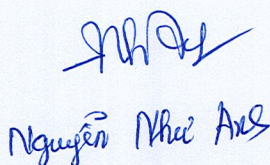 Nguyễn Như Anh